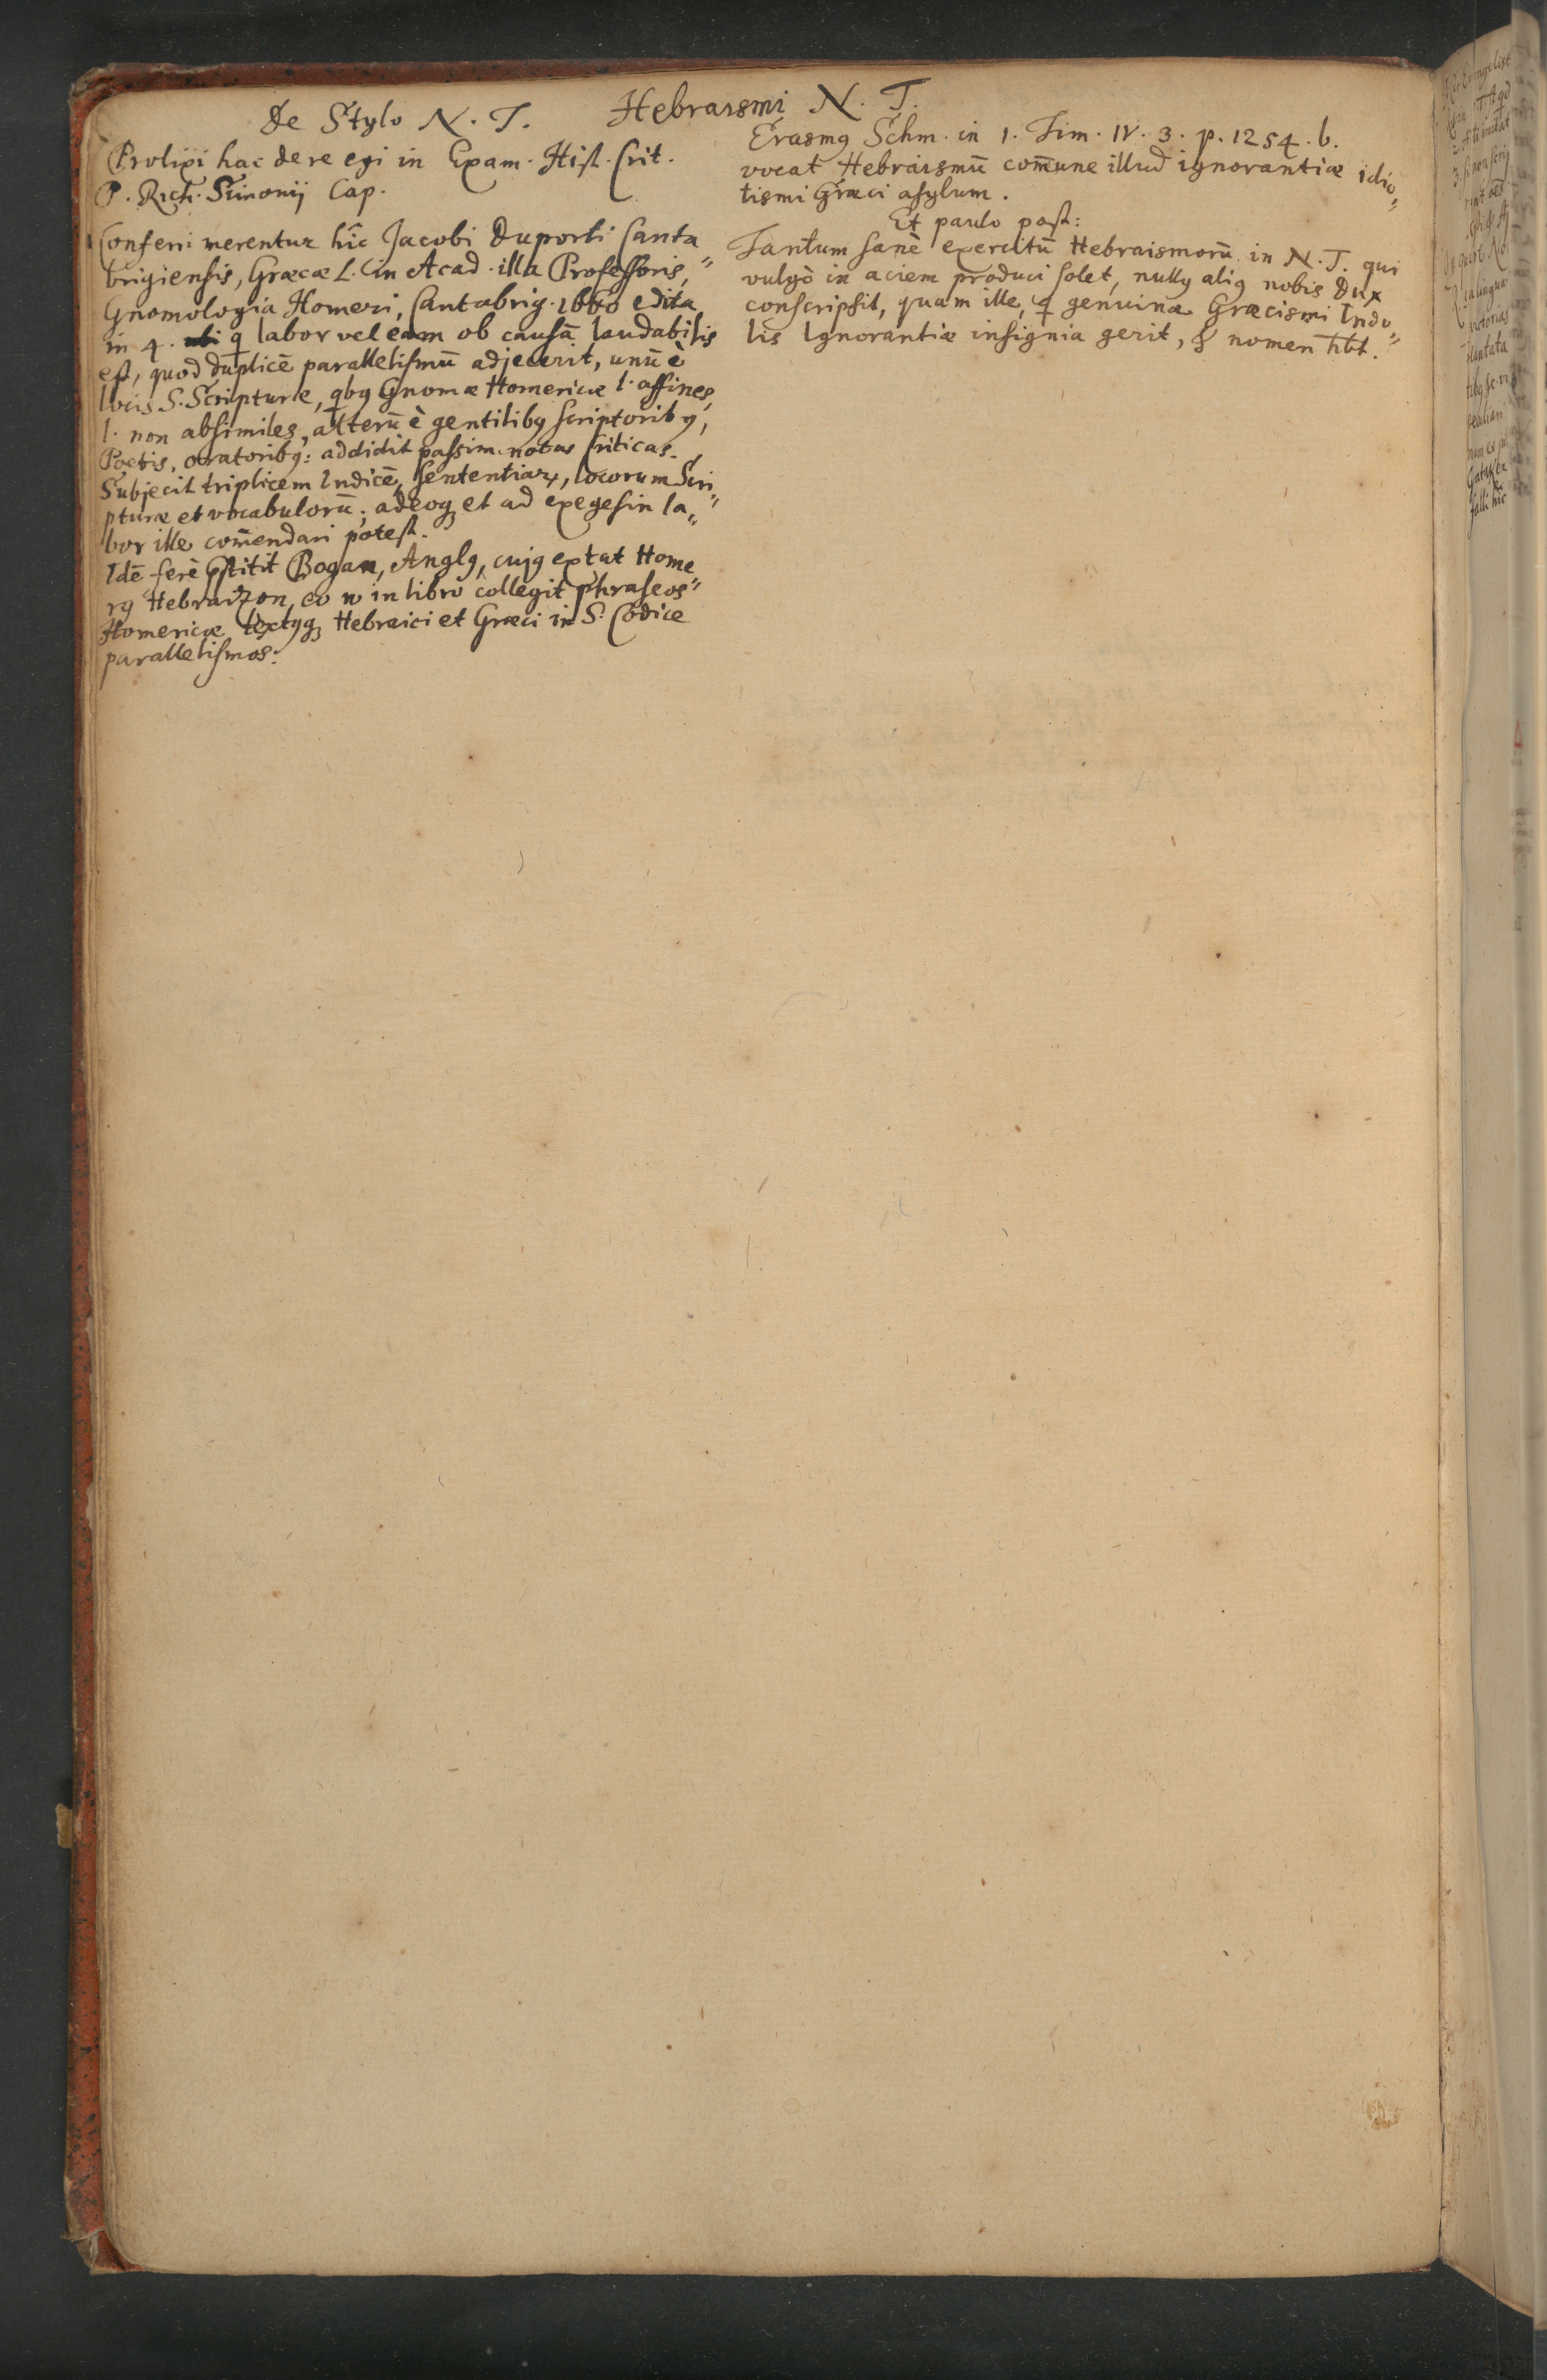 De Stylo N. T.
Prolixi hac de re egi in Exam. Hist. Crit.
P. Rich. Simonij Cap.
Conferri merentur hîc Jacobi Duporti Canta
brigiensis, Græcæ L. in Acad. illa Professoris,
Gnomologia Homeri, Cantabrig. 1660 edita
in 4. labor vel eam ob causā laudabilis
est, quod duplicē parallelismū adjecerit, unū è
locis S. Scripturæ, qbꝰ Gnomæ Homericæ l. affines,
l. non absimiles, alterū è gentilibꝰ scriptoribꝰ,
Poetis, oratoribꝰ: addidit passim notas Criticas.
Subjecit triplicem Indicē, Sententiarꝝ, locorum Scri
pturæ et vocabulorū; adeoqꝫ et ad exegesin la„
bor ille com̄endari potest.
Idē ferè p̄stitit Bogan, Anglꝰ, cujꝰ extat Home
rꝰ Hebraizon, eo n̄ in libro collegit phraseos
Homericæ textusqꝫ Hebraici et Græci in S. Codice
parallelismos.
Hebraismi N. T.
Erasmꝰ Schm. in 1. Tim. IV. 3. p. 1254. b.
vocat Hebraismū com̄une illud ignorantiæ idio„
tismi Græci asylum.
Et paulo post:
Tantum sanè exercitū Hebraismorū in N. T. qui
vulgò in aciem produci solet, nullꝰ aliꝰ nobis Dux
conscripsit, quam ille, q genuinæ Græcismi Indo„
lis Ignorantiæ insignia gerit, & nomen hbt.